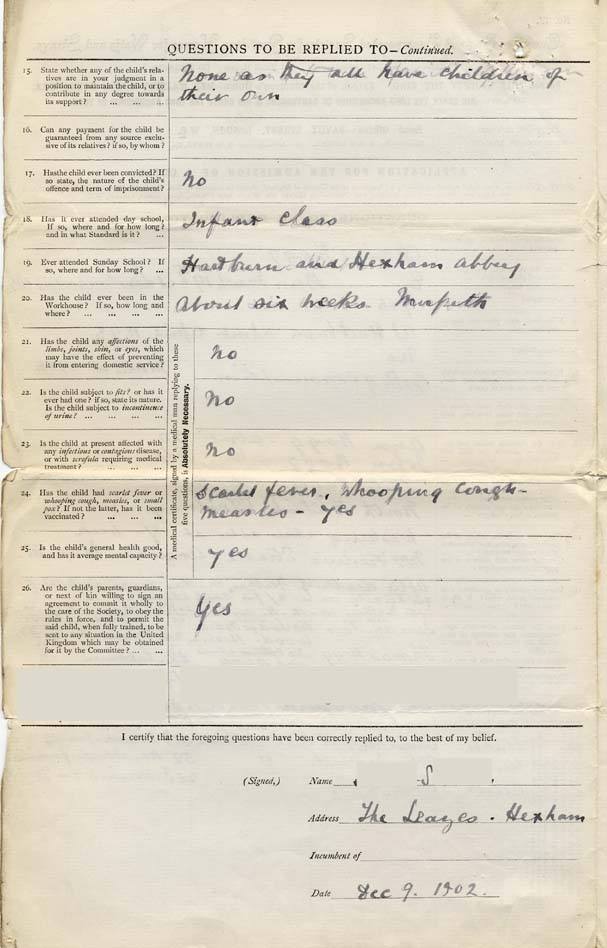 QUESTIONS TO BE REPLIED TO—Continued.
15. State whether any of the child's rela-
tives are in your judgment in a
position to maintain the child, or to
contribute in any degree towards
its support? ... ... ...
None as they all have children of
their own
16. Can any payment for the child be
guaranteed from any source exclu-
sive of its relatives? if so, by whom?
17. Has the child ever been convicted? If
so state, the nature of the child's
offence and term of imprisonment?
No
18. Has it ever attended day school,
If so, where and for how long?
and in what Standard is it? ...
Infant Class
19. Ever attended Sunday School? If
so, where and for how long? ...
Hartburn and Hexham abbey
20. Has the child ever been in the
Workhouse? If so, how long and
where? ... ... ... ...
About six weeks Morpeth
A medical certificate, signed by a medical man replying to these
five questions, is Absolutely Necessary.
21. Has the child any affections of the
limbs, joints, skin, or eyes, which
may have the effect of preventing
it from entering domestic service?
No
22. Is the child subject to fits? or has it
ever had one? if so, state its nature.
Is the child subject to incontinence
of urine? ... ... ... ...
No
23. Is the child at present affected with
any infectious or contagious disease,
or with scrofula requiring medical
treatment? ... ... ... ...
No
24. Has the child had scarlet fever or
whooping cough, measles, or small
pox? If not the latter, has it been
vaccinated? ... ... ...
Scarlet fever, Whooping Cough-
Measles - Yes
25. Is the child's general health good,
and has it average mental capacity?
Yes
26. Are the child's parents, guardians,
or next of kin willing to sign an
agreement to commit it wholly to
the care of the Society, to obey the
rules in force, and to permit the
said child, when fully trained, to be
sent to any situation in the United
Kingdom which may be obtained
for it by the Committee? ... ...
Yes
I certify that the foregoing questions have been correctly replied to, to the best of my belief.
(Signed,) Name S
Address The Leazes. Hexham
Incumbent of
Date Dec 9. 1902.